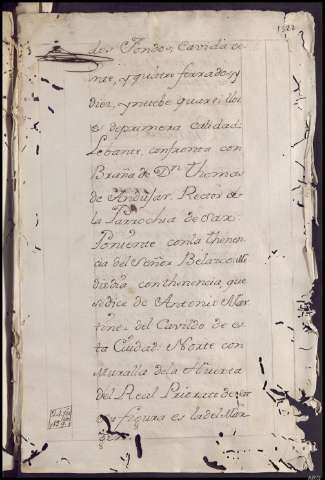 1522
des Fondos, Cavida ve
inte, y quatro ferrados, y
diez, y nuebe quartillos
es de primera calidad:
Lebante, confronta con
Braña de Dn. Thomas
de Andujar, Rector de
la Parrochia de Sax:
Poniente con la thenen
cia del Señor Belarco:
con thenencia, que
se dice de Antonio Mar
tines del Cavildo de es
ta Ciudad: Norte con
Muralla de la Huerta
del Real Priorato de
su figura es la del Mar
gen